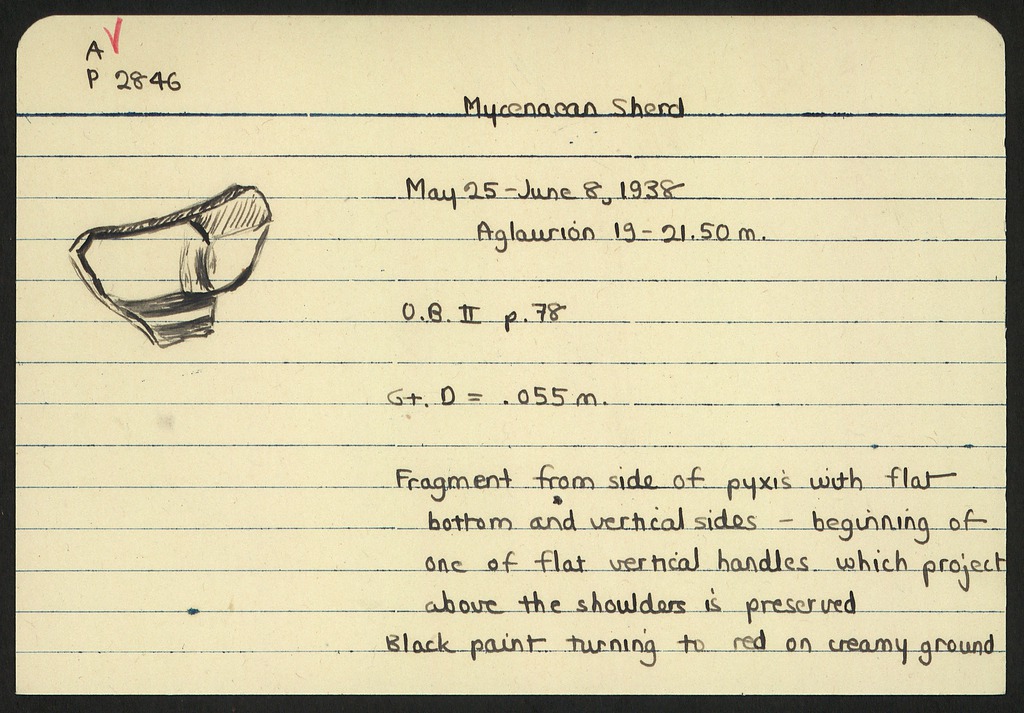 A
P 2846
Mycenaean Sherd
May 25-June 8, 1938
Aglaurion 19-21.50 m.
O.B. II p. 78
Gt. D = .055 m.
Fragment from side of pyxis with flat
bottom and vertical sides - beginning of
one of flat vertical handles. which project
above the shoulders is preserved
Black paint turning to red on creamy ground